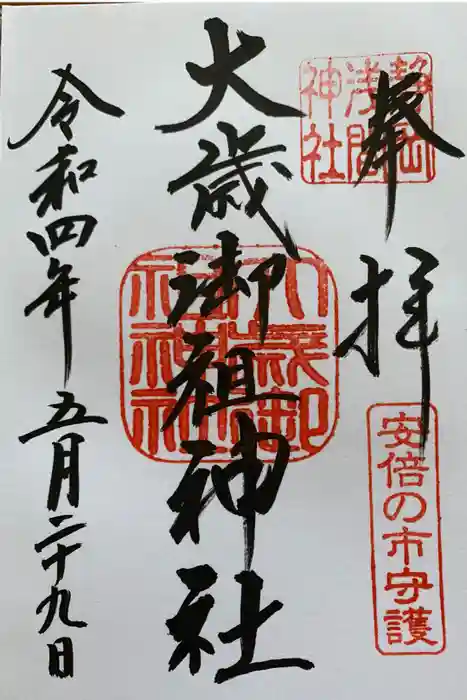 奉拝
静岡浅間神社
安倍の市守護
大歳御祖神社
大歳御祖神社
令和四年五月二十九日